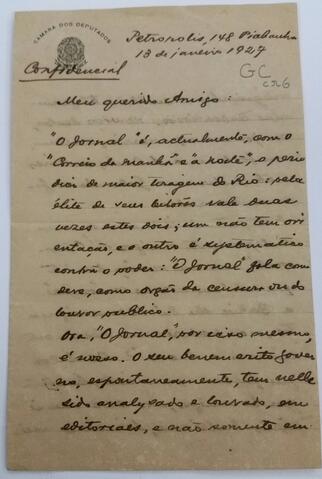 CAMARA DOS DEPUTADOS
Petropolis, 148 Piabanha
13 de janeiro 1927
Confidencial
GC
Meu querido Amigo:
"O Jornal" é, actualmente, com o
"Correio da manhã" e "a noite", o perio
dico de maior tiragem do Rio: pela
élite de seus leitores vale duas
vezes estes dois; um não tem ori
entação, e o outro é systematico
contra o poder: "O Jornal" fala com
deve, como orgão da censura ou do
louvor publico.
Ora, "O Jornal", por isso mesmo,
é nosso. O seu benemerito gover
no, espontaneamente, tem nelle
sido analysado e louvado, em
editoriaes, e não somente em